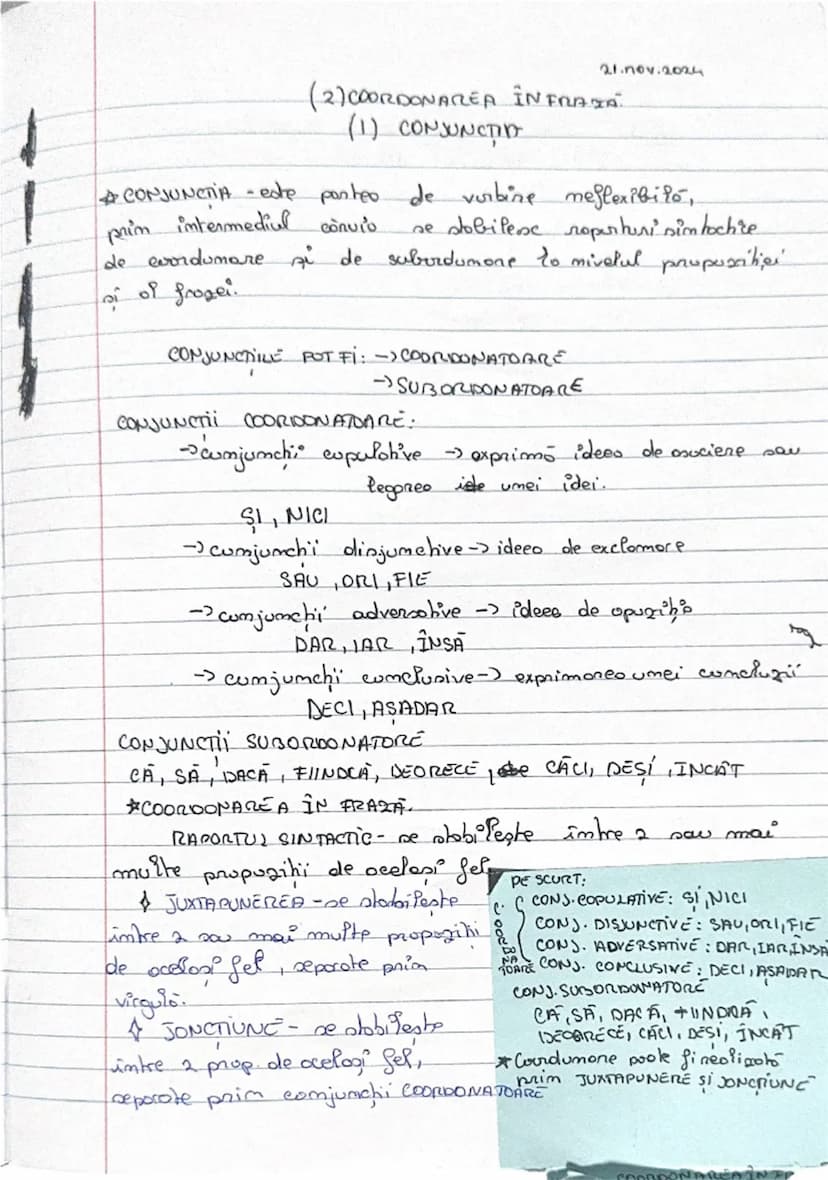 21.nov.2024
(2) COORDONAREA ÎN FRAZĂ.
(1) CONJUNCȚIA
☆ CONJUNCȚIA - este partea de vorbire neflexibilă,
prin intermediul căruia se stabilesc raporturi sintactice
de coordonare și de subordonare la nivelul propoziției
și al frazei.
CONJUNCȚIILE POT FI: -> COORDONATOARE
-> SUBORDONATOARE
CONJUNCȚII COORDONATOARE:
-> conjuncții copulative -> exprimă ideea de asociere sau
legarea unei idei.
ȘI, NICI
-> conjuncții disjunctive -> ideea de exclamare
SAU, ORI, FIE
-> conjuncții adversative -> ideea de opoziție
DAR, IAR, ÎNSĂ
-> conjuncții conclusive -> exprimarea unei concluzii
DECI, AȘADAR
CONJUNCȚII SUBORDONATORE
CĂ, SĂ, DACĂ, FIINDCĂ, DEORECE, CĂCI, DEȘI, INCÂT
*COORDONAREA ÎN FRAZĂ.
RAPORTUL SINTACTIC - se stabilește între 2 sau mai
multe propoziții de același fel
JUXTAPUNEREA - se stabilește
între 2 sau mai multe propoziții
de același fel, separate prin
virgulă.
JONCȚIUNE - se stabilește
între 2 prop. de același fel,
separate prin conjuncții COORDONATOARE
PE SCURT:
COORDONATOARE
CONJ. COPULATIVE: ȘI, NICI
CONJ. DISJUNCTIVE: SAU, ORI, FIE
CONJ. ADVERSATIVE: DAR, IAR, ÎNSA
CONJ. CONCLUSIVE: DECI, AȘADAR
CONJ. SUBORDONATORE
CĂ, SĂ, DACĂ, FIINDCĂ,
DEOARECE, CĂCI, DEȘI, ÎNCÂT
*Coordonare poate fi realizată
prin JUXTAPUNERE ȘI JONCȚIUNE